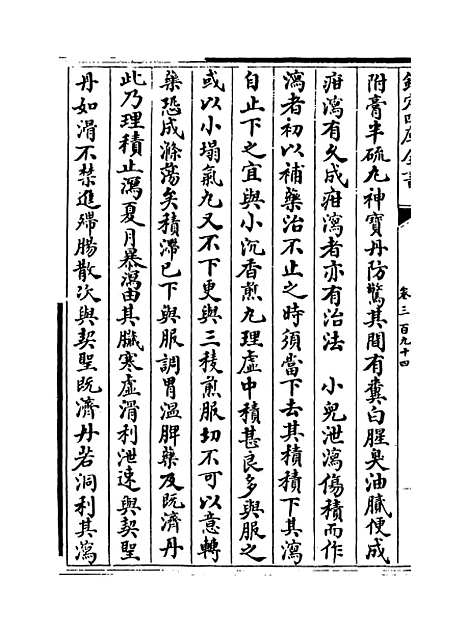 欽定四庫全書
卷三百九十四
附膏半硫丸神寳丹防驚其間有糞白腥臭油膩便成
疳瀉有久成疳瀉者亦有治法　小兒泄瀉傷積而作
瀉者初以補藥治不止之時須當下去其積積下其瀉
自止下之宜與小沉香煎丸理虚中積甚良多與服之
或以小塌氣丸又不下更與三稜煎服切不可以意轉
藥恐成滌蕩矣積滯已下與服調胃温脾藥及既濟丹
此乃理積止瀉夏月暴瀉由其臟寒虚滑利泄速與契聖
丹如滑不禁進殢腸散次與契聖既濟丹若洞利其瀉